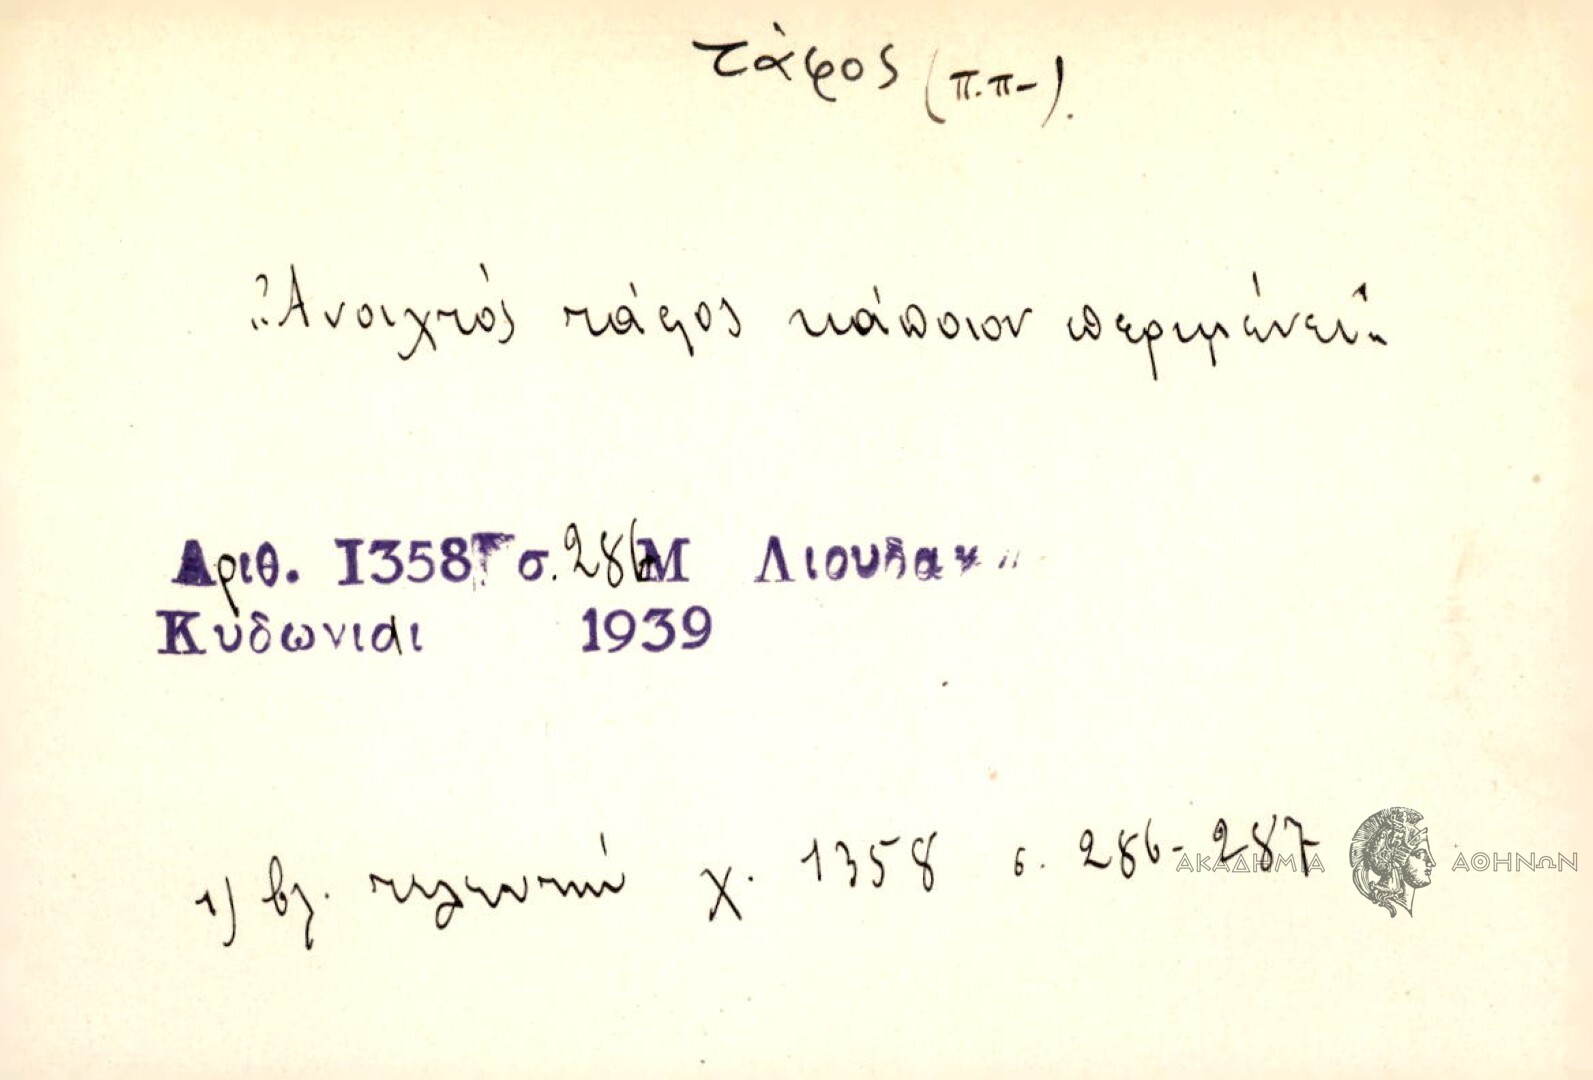 τάφος (π.π-).
„Ἀνοιχτός τάφος κάποιον περιμένει"
Αριθ. 1358 σ. 286 Μ Λιουδακ
Κυδωνιαι 1939
1) βλ. τελευτήν χ. 1358 σ. 286-287
ΑΚΑΔΗΜΙΑ ΑΘΗΝΩΝ